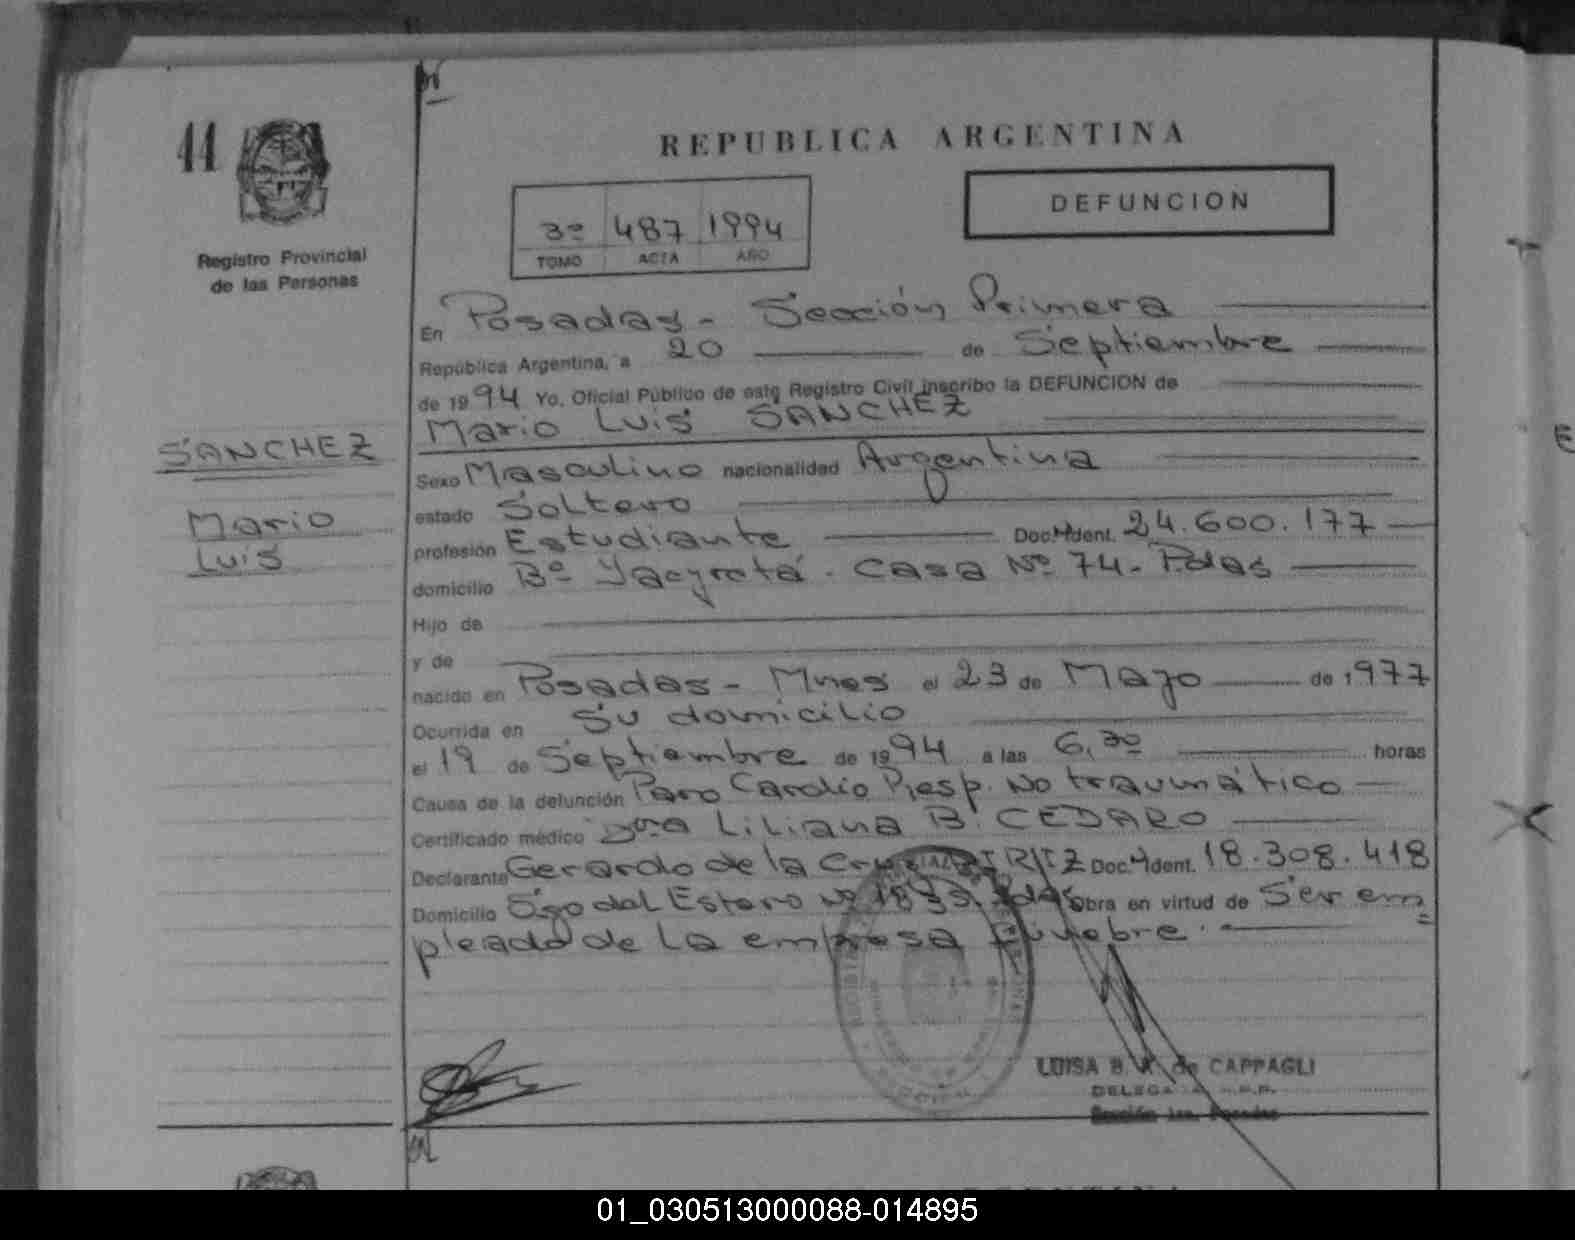 44
REPUBLICA ARGENTINA
DEFUNCION
3º 487 1994
TOMO ACTA AÑO
Registro Provincial
de las Personas
En Posadas - Sección Primera
República Argentina, a 20 de Septiembre
de 1994 Yo, Oficial Público de este Registro Civil inscribo la DEFUNCION de
Mario Luis SANCHEZ
SANCHEZ
Mario
Luis
Sexo Masculino nacionalidad Argentina
estado Soltero
profesión Estudiante Doc. Ident. 24.600.177
domicilio Bº Yacyretá - Casa Nº 74 - Pdas
Hijo de
y de
nacido en Posadas - Mnes el 23 de Mayo de 1977
Ocurrida en Su domicilio
el 19 de Septiembre de 1994 a las 6,30 horas
Causa de la defunción Paro Cardio Resp. No traumático
Certificado médico Dra Liliana B. CEDARO
Declarante Gerardo de la Cruz Doc. Ident. 18.308.418
Domicilio Sgo del Estero Nº Obra en virtud de Ser em=
pleado de la empresa fúnebre.
LUISA B. de CAPPAGLI
Sección 1ra. Posadas
01_030513000088-014895